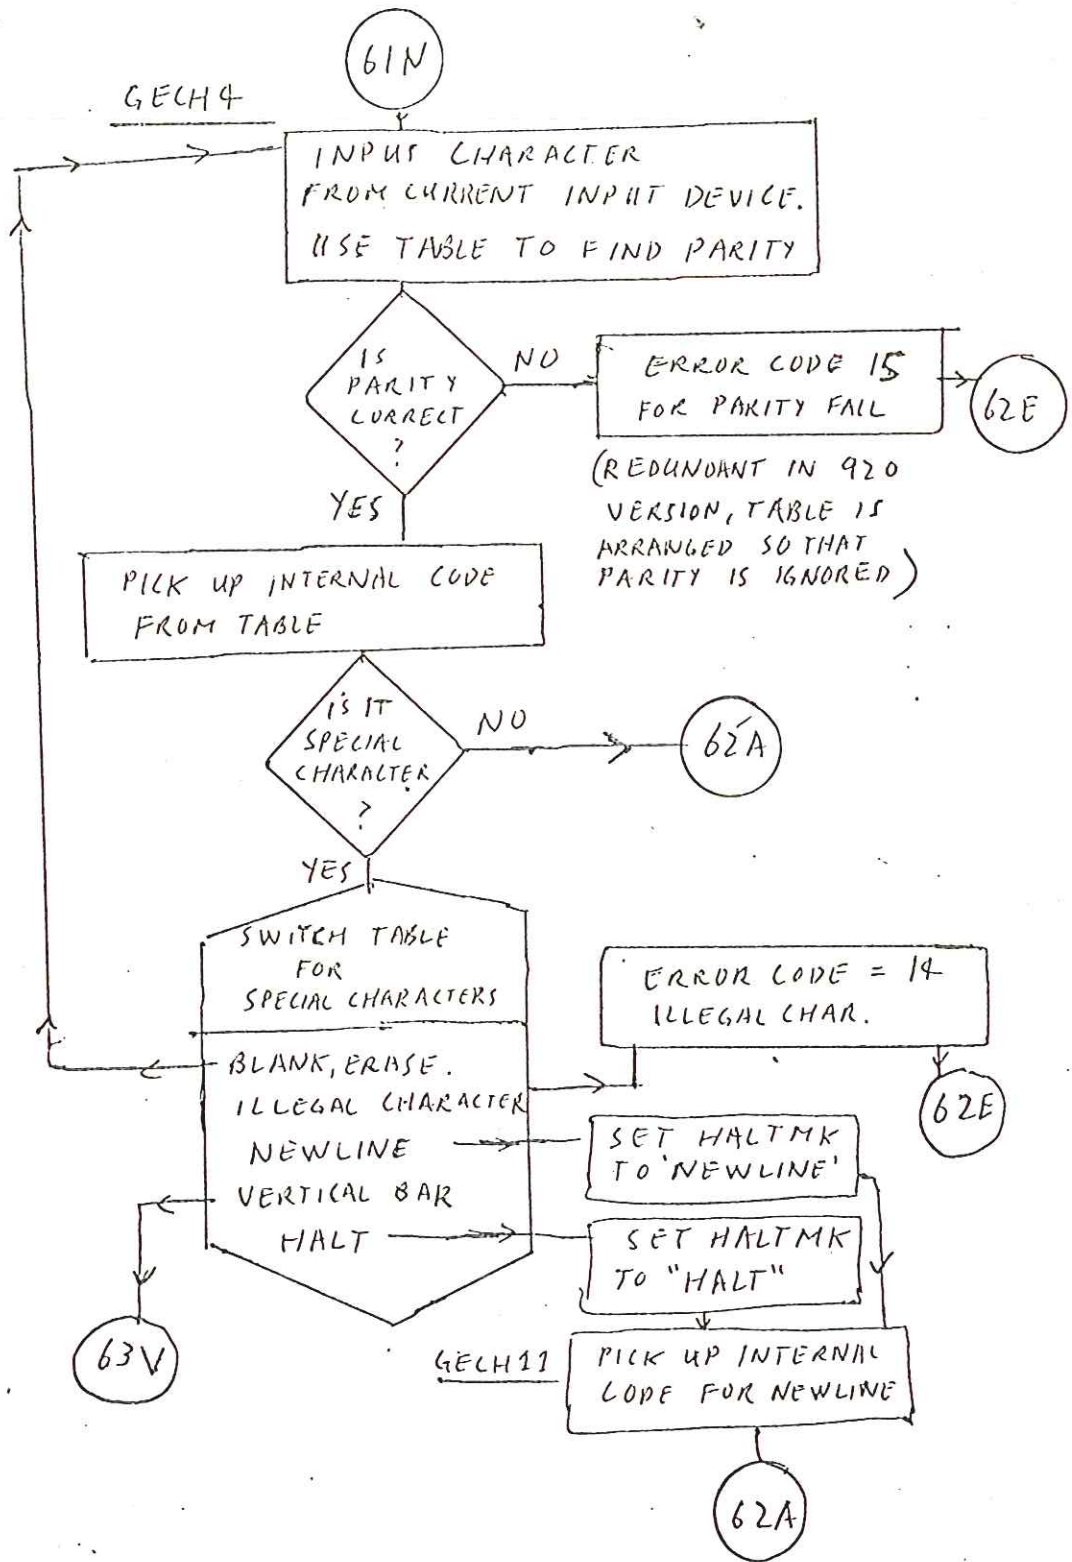 61N
GECH4
INPUT CHARACTER
FROM CURRENT INPUT DEVICE.
USE TABLE TO FIND PARITY
IS
PARITY
CORRECT
?
NO
ERROR CODE 15
FOR PARITY FAIL
62E
(REDUNDANT IN 920
VERSION, TABLE IS
ARRANGED SO THAT
PARITY IS IGNORED)
YES
PICK UP INTERNAL CODE
FROM TABLE
IS IT
SPECIAL
CHARACTER
?
NO
62A
YES
SWITCH TABLE
FOR
SPECIAL CHARACTERS
ERROR CODE = 14
ILLEGAL CHAR.
62E
BLANK, ERASE.
ILLEGAL CHARACTER
NEWLINE
SET HALTMK
TO 'NEWLINE'
VERTICAL BAR
HALT
SET HALTMK
TO "HALT"
63V
GECH11
PICK UP INTERNAL
CODE FOR NEWLINE
62A